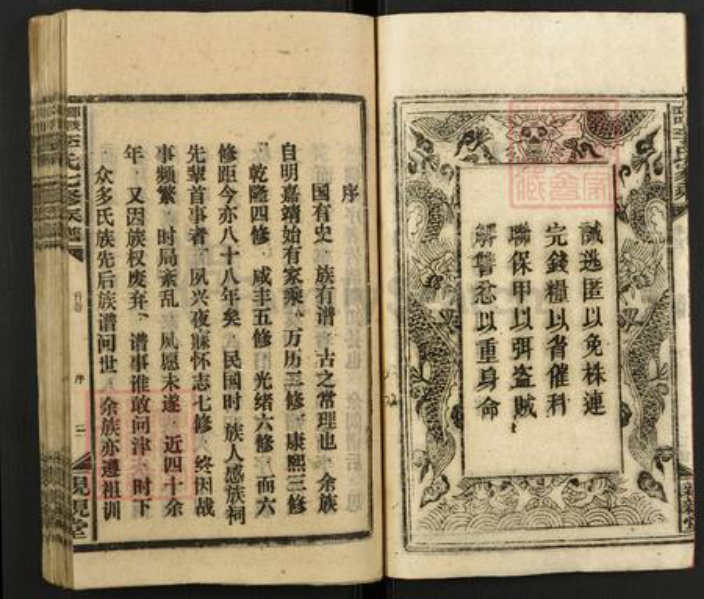 誡逃匿以免株連
完錢糧以省催科
聯保甲以弭盗賊
解讐忿以重身命
序
国有史 族有谱 古之常理也 余族
自明嘉靖始有家乘 万历三修 康熙三修
乾隆四修 咸丰五修 光绪六修 而六
修距今亦八十八年矣 民国时 族人感族祠
先辈首事者 夙兴夜寐怀志七修 终因战
事频繁 时局紊乱 夙愿未遂 近四十余
年 又因族权废弃 谱事谁敢问津 时下
众多氏族先后族谱问世 余族亦遵祖训
李氏七修族谱
首卷
序